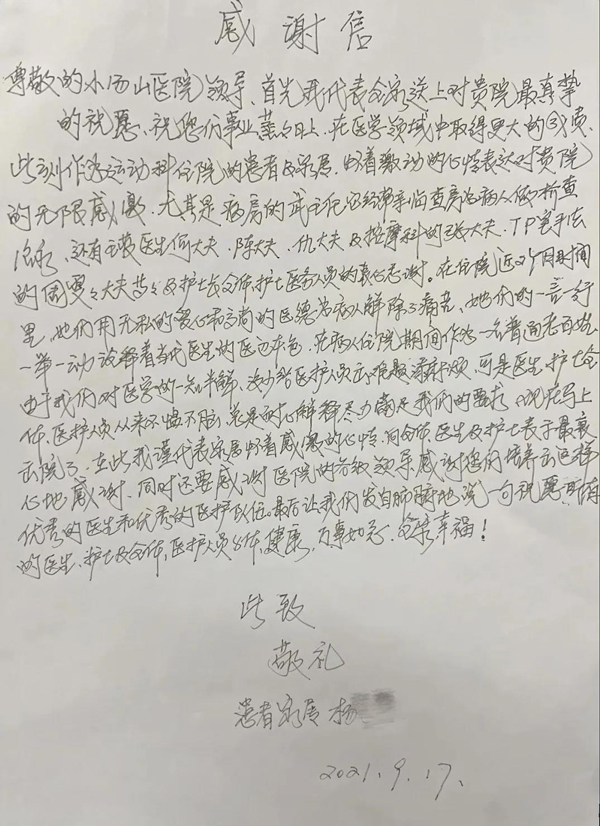 感谢信
尊敬的小汤山医院领导、首先我代表全家送上对贵院最真挚
的祝愿、祝您们事业蒸蒸日上、在医学领域中取得更大的成果
此刻作为运动科住院的患者及家属、怀着激动的心情表达对贵院
的无限感激、尤其是病房的武主任还经常亲临查房给病人做检查
还有主管医生何大夫、陈大夫、仇大夫及按摩科的张大夫、TP
的周雯大夫 及护士长全体护士医务人员的真心感谢。在住院近2个月时间
里、她们用无私的爱心和高尚的医德为病人解除了痛苦、她们的一言一行
一举一动诠释着当代医生的医边本色、在病人住院期间作为一名普通老百姓
由于我们对医学的一知半解、没少给医护人员出难题添麻烦、可是医生、护士全
体、医护人员从来不愠不脑、总是耐心解释尽力满足我们的要求、现在马上
出院了、在此我谨代表家属怀着感恩的心情、向全体医生及护士表于最衷
心地感谢、同时还要感谢医院的各级领导、感谢您们培养出这样
优秀的医生和优秀的医护队伍。最后让我们发自肺腑地说一句祝愿所有
的医生、护士及全体、医护人员、身体健康、万事如意、全家幸福！
此致
敬礼
患者家属 杨
2021.9.17.